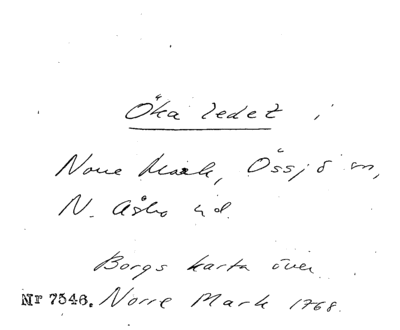 Öka ledet i
Norre Mark, Össjö sn,
N. Åsbo hd.
Borgs karta över
Nr 7546. Norre Mark 1768.